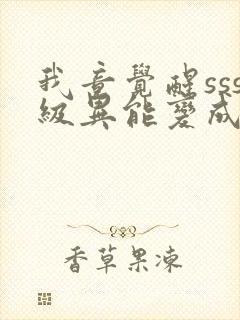 我竟覺醒sss
級異能變成
香草果凍